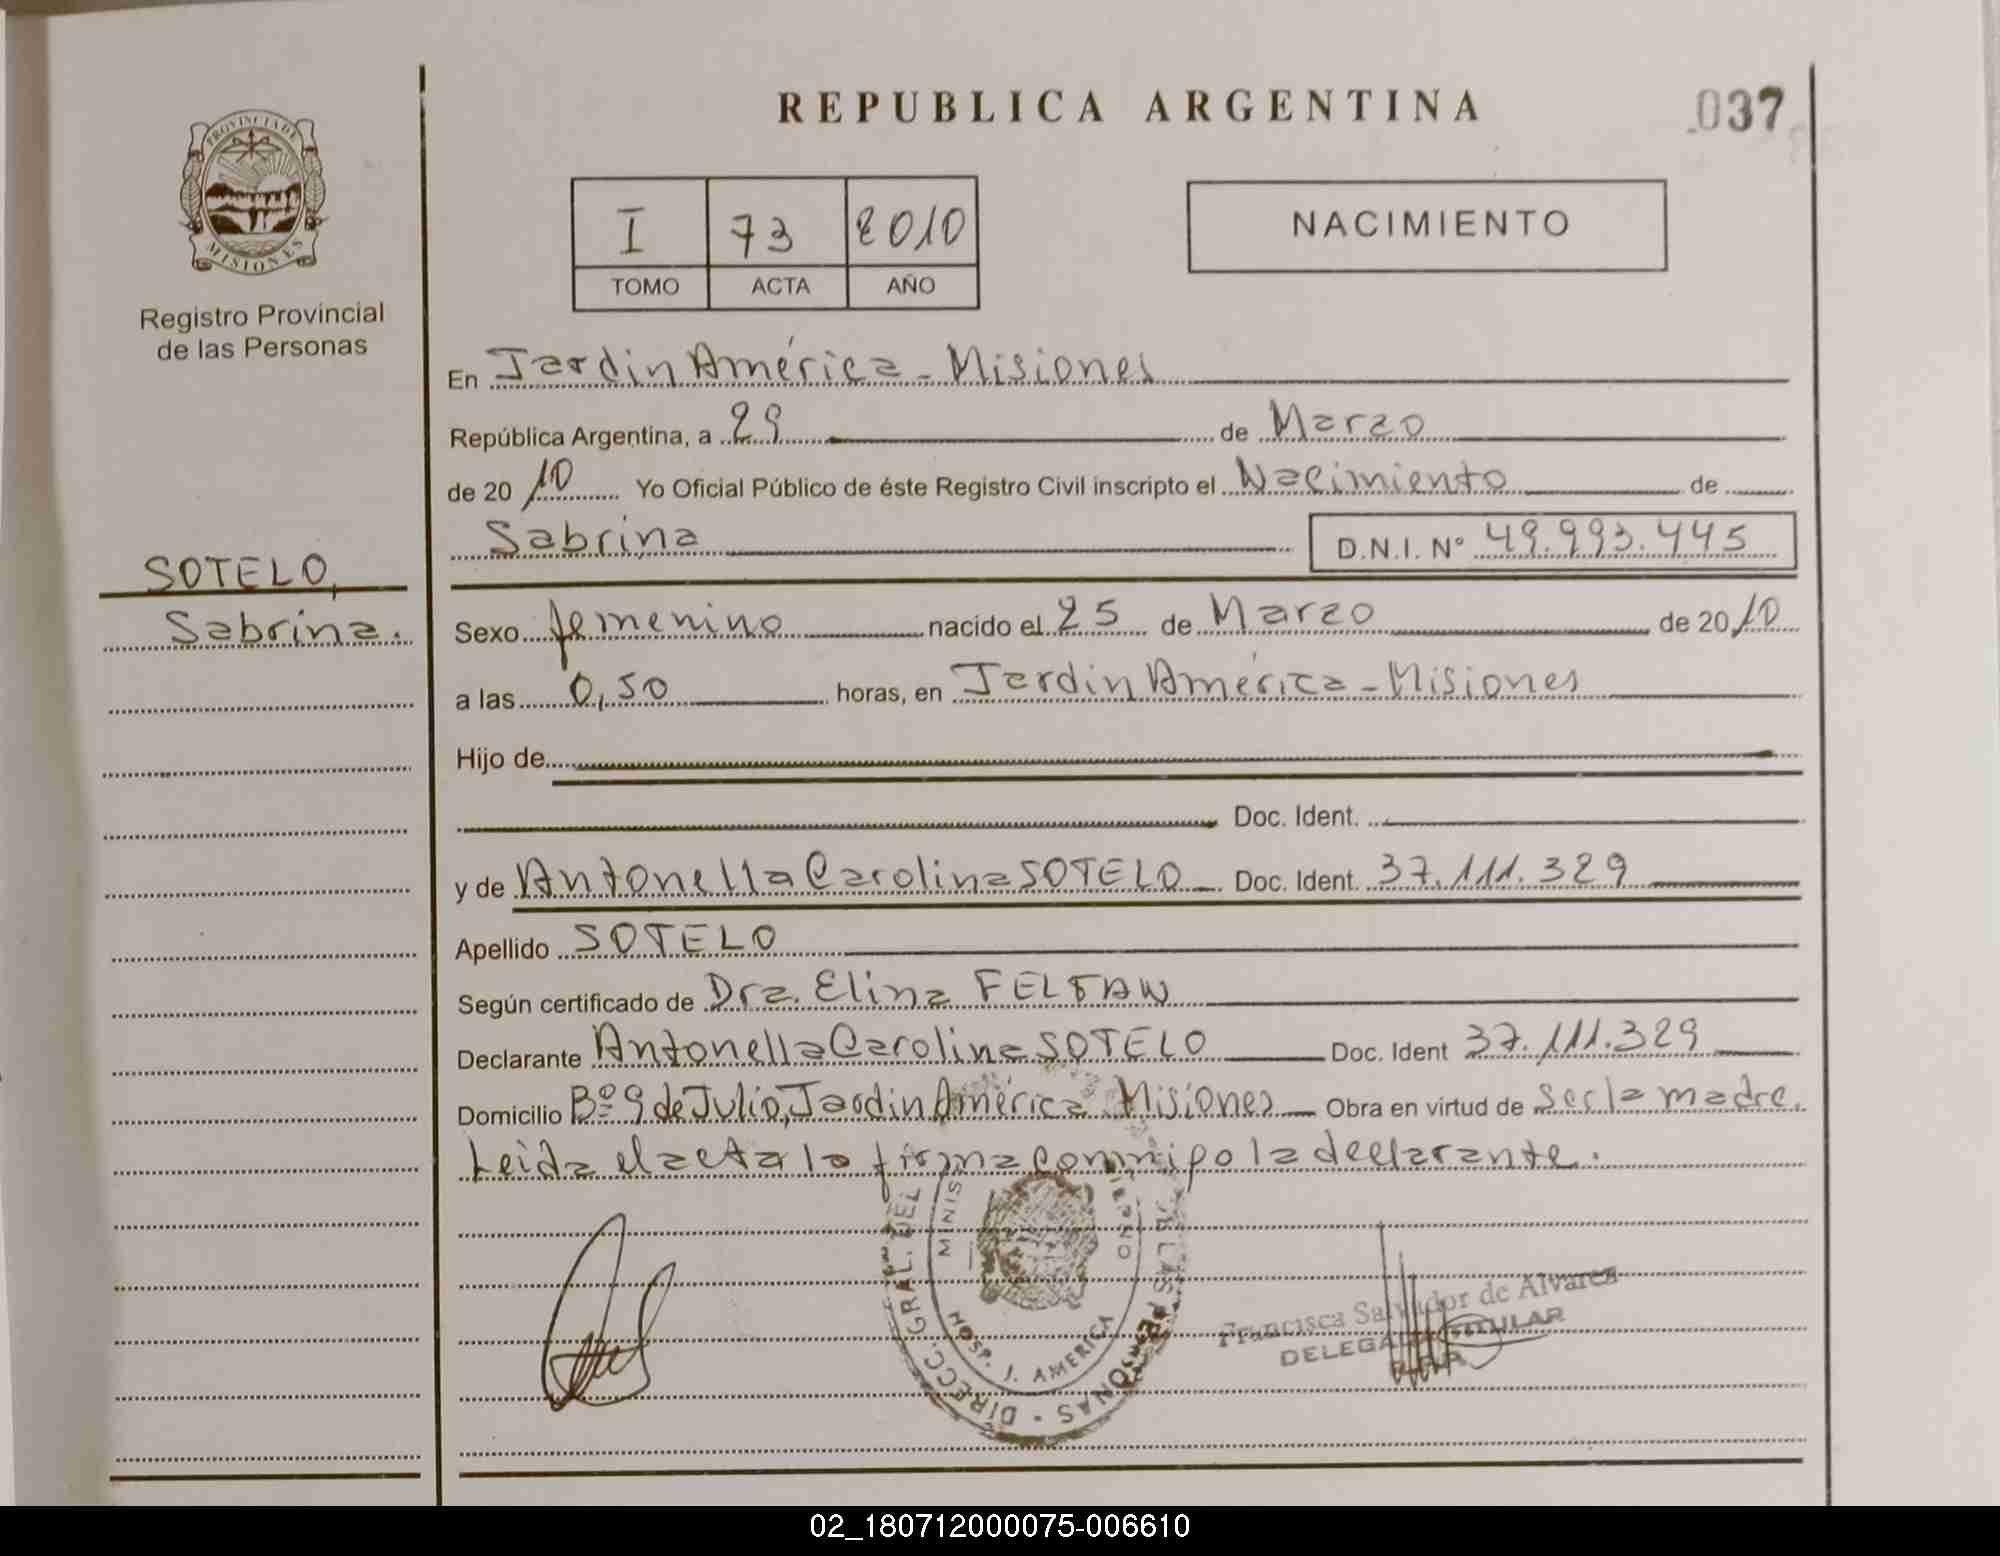 REPUBLICA ARGENTINA
037
PROVINCIA DE
MISIONES
Registro Provincial
de las Personas
I 73 2010
TOMO ACTA AÑO
NACIMIENTO
En Jardin América - Misiones
República Argentina, a 29 de Marzo
de 2010 Yo Oficial Público de éste Registro Civil inscripto el Nacimiento de
Sabrina D.N.I. Nº 49.993.445
SOTELO,
Sabrina.
Sexo femenino nacido el 25 de Marzo de 2010
a las 0,50 horas, en Jardin América - Misiones
Hijo de
Doc. Ident.
y de Antonella Carolina SOTELO Doc. Ident. 37.111.329
Apellido SOTELO
Según certificado de Dra. Elina
Declarante Antonella Carolina SOTELO Doc. Ident 37.111.329
Domicilio Bº 9 de Julio, Jardin América Misiones Obra en virtud de ser la madre.
Leida el acta la firma conmigo la declarante.
DIRECC. GRAL. DEL
DE LAS PERSONAS
HOSP. J. AMERICA
Francisca Salvador de Alvarez
DELEGADO TITULAR
02_180712000075-006610